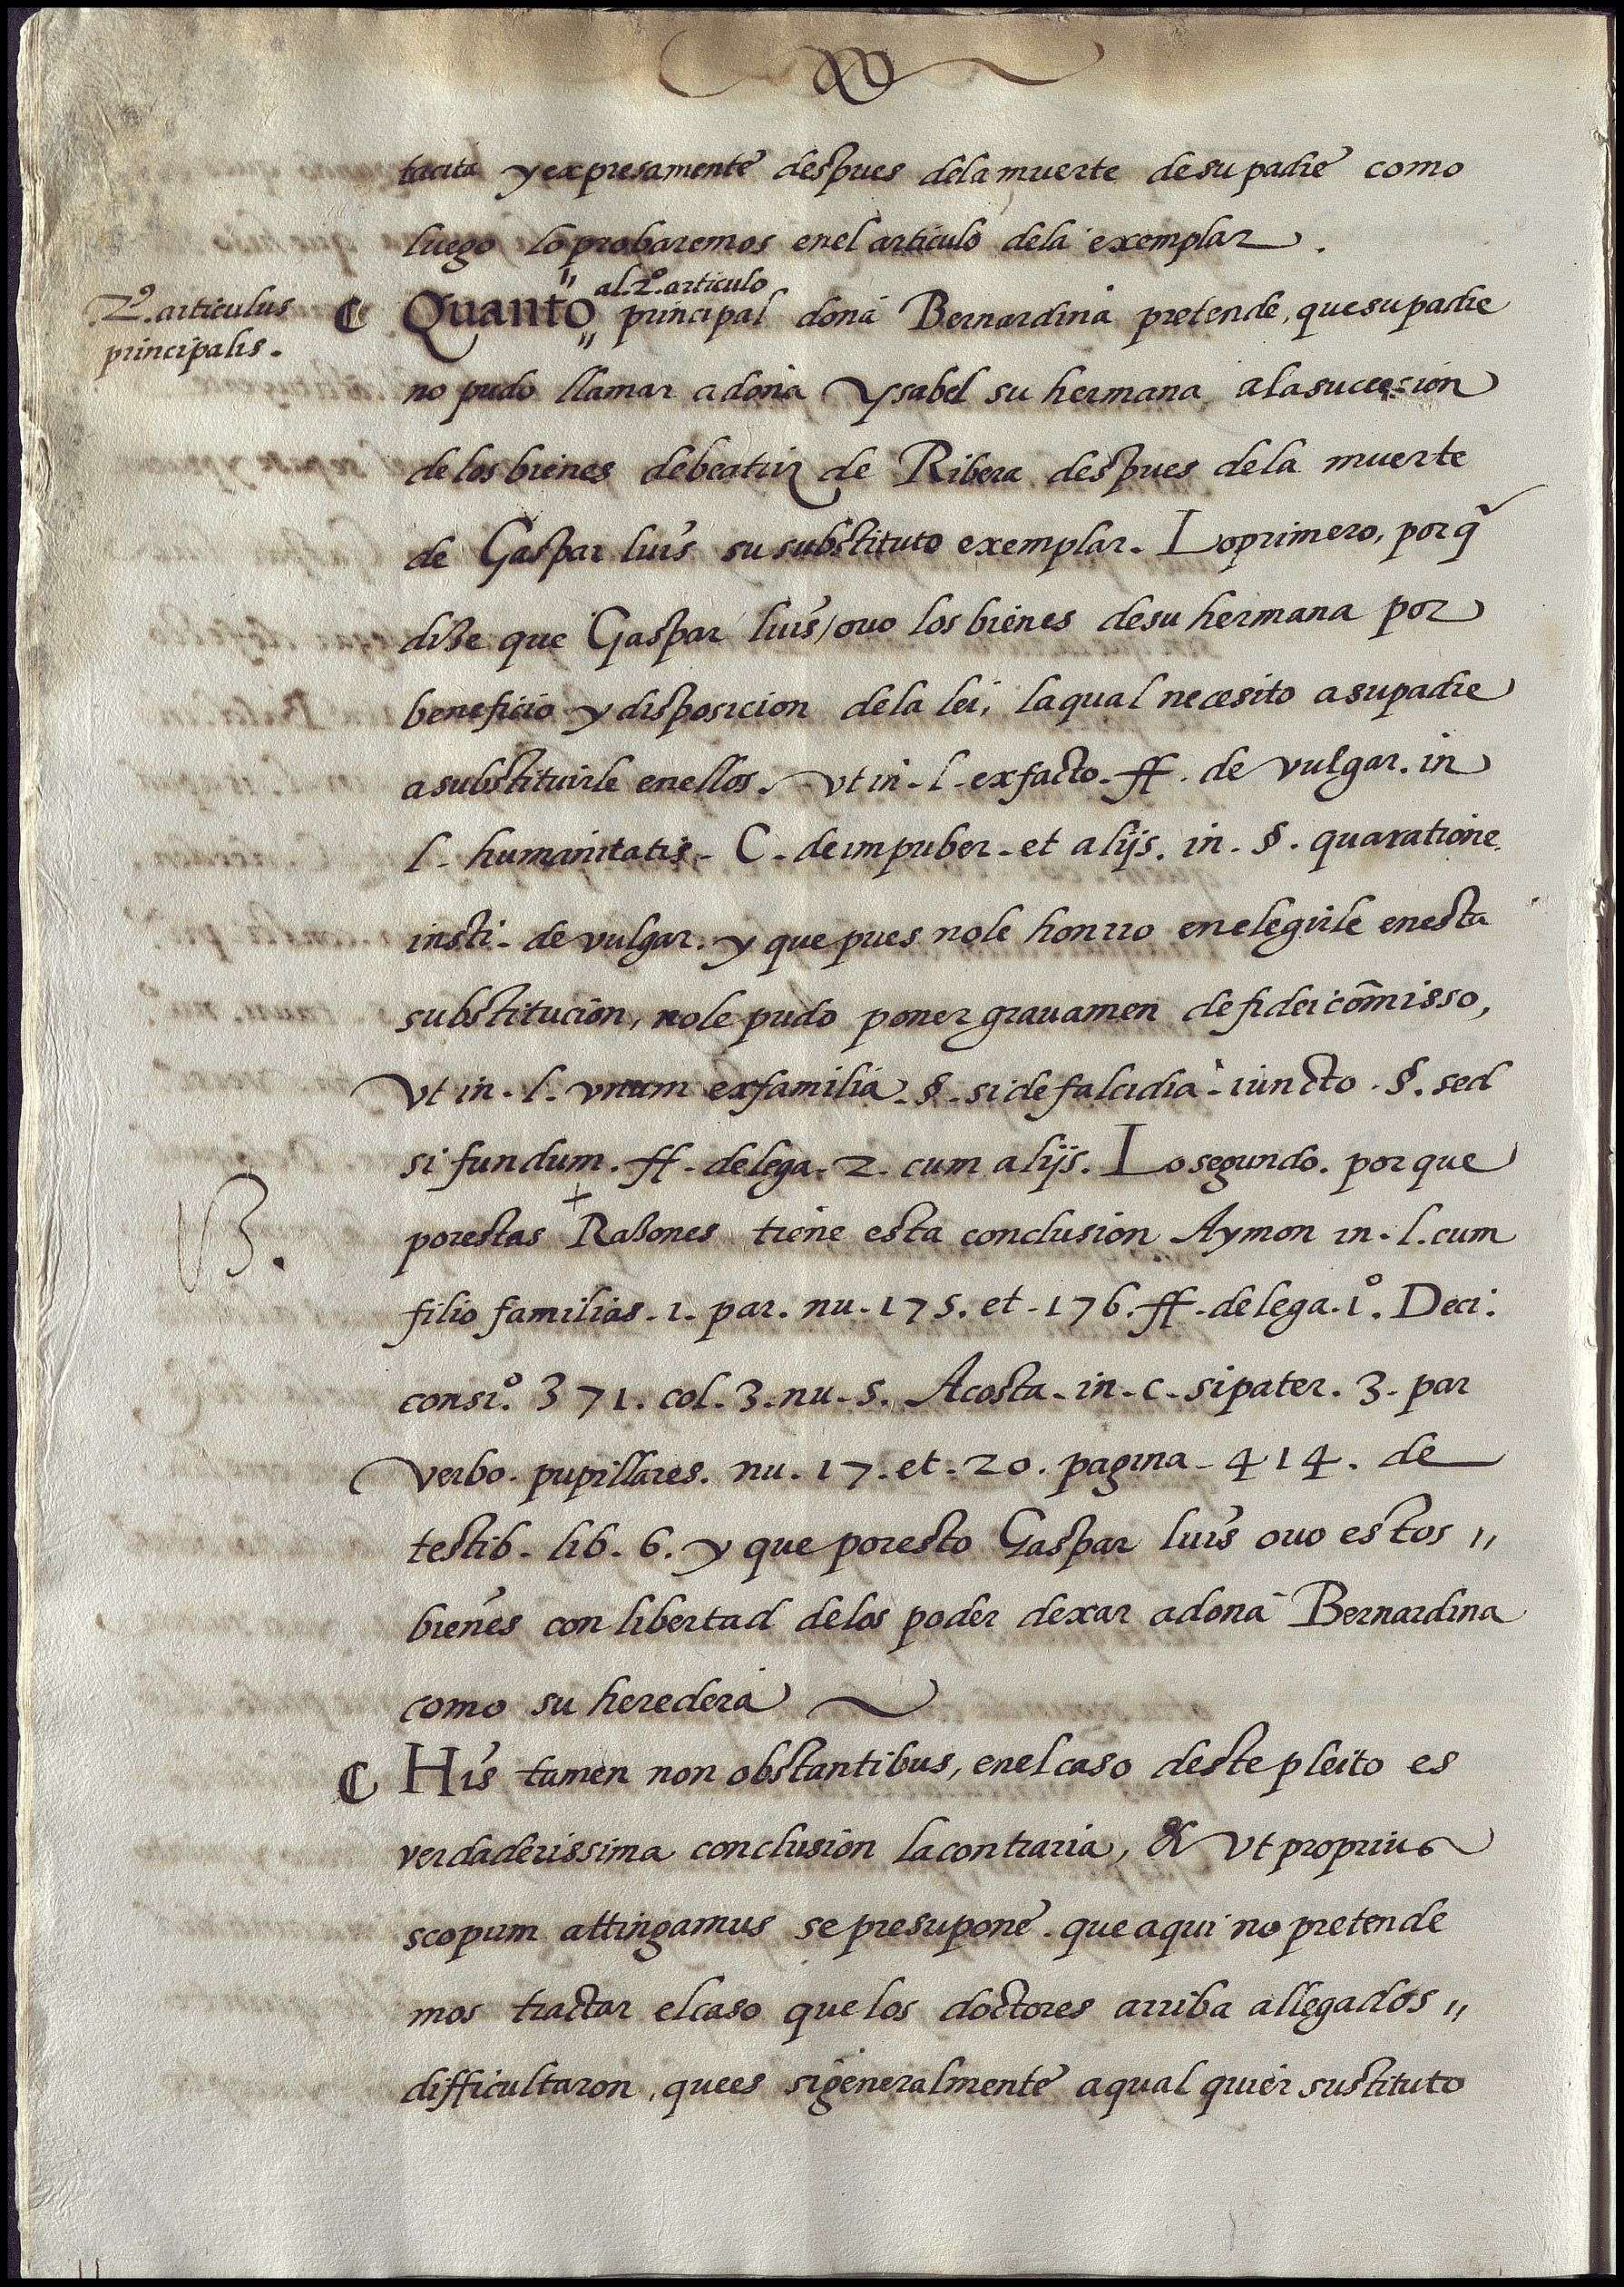 tacita y expresamente despues dela muerte de su padre como
luego lo probaremos enel articulo dela exemplar.
2º. articulus
principalis.
al. 2º. articulo
¶ Quanto " principal doña Bernardina pretende, que su padre
no pudo llamar a doña Ysabel su hermana a la succesion
de los bienes de beatriz de Ribera despues dela muerte
de Gaspar luis su substituto exemplar. Lo primero, por q̃
dize que Gaspar luis / ouo los bienes de su hermana por
beneficio y disposicion dela lei, la qual necesito a su padre
a substituirle enellos. Vt in. l. ex facto. ff. de vulgar. in
l. humanitatis. C. de impuber. et alijs. in. §. qua ratione.
insti. de vulgar. y que pues nole honrro en elegirle en esta
substitucion, nole pudo poner grauamen de fideicõmisso,
Vt in. l. vnum ex familia. §. si de falcidia. iuncto. §. sed
si fundum. ff. de lega. 2. cum alijs. Lo segundo. por que
B.
por estas + Razones tiene esta conclusion Aymon in. l. cum
filio familias. 1. par. nu. 175. et. 176. ff. de lega. 1º. Deci.
consi.º 371. col. 3. nu. 5. Acosta. in. c. si pater. 3. par
Verbo. pupillares. nu. 17. et. 20. pagina. 414. de
testib. lib. 6. y que por esto Gaspar luis ouo estos "
bienes con libertad delos poder dexar a doña Bernardina
como su heredera
¶ His tamen non obstantibus, enel caso deste pleito es
verdaderissima conclusion la contraria, & Vt proprius
scopum attingamus se presupone. que aqui no pretende
mos tractar el caso que los doctores arriba allegados "
difficultaron, que es si generalmente a qual quier sustituto